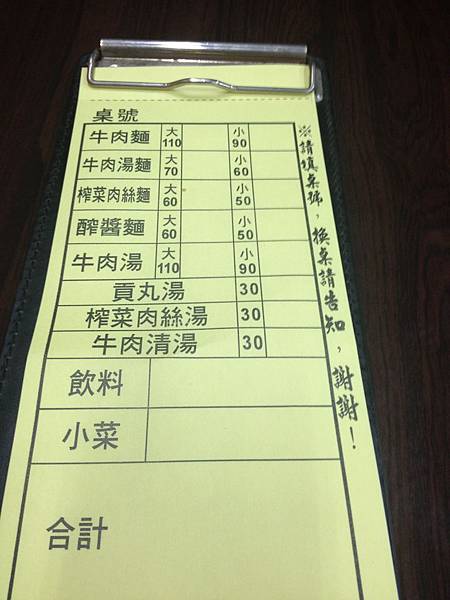 桌號
牛肉麵 大110 小90
牛肉湯麵 大70 小60
榨菜肉絲麵 大60 小50
酢醬麵 大60 小50
牛肉湯 大110 小90
貢丸湯 30
榨菜肉絲湯 30
牛肉清湯 30
飲料
小菜
合計
※請填桌號，換桌請告知，謝謝！